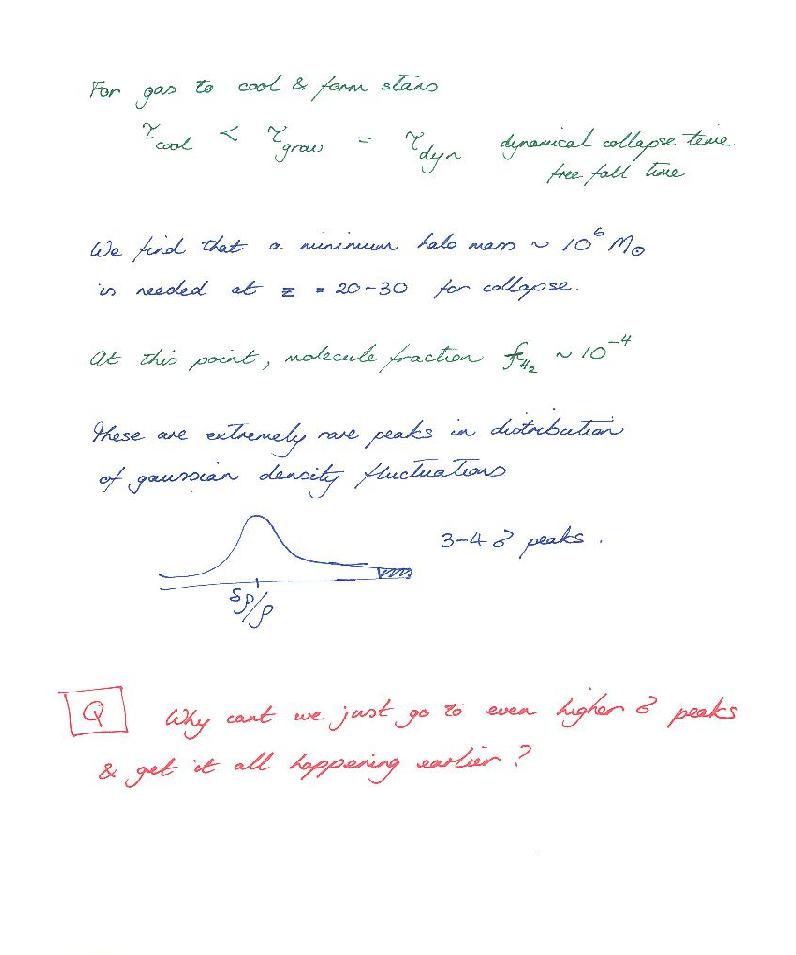 For gas to cool & form stars
τcool < τgrow = τdyn dynamical collapse time
free fall time
We find that a minimum halo mass ~ 10⁶ M⊙
is needed at z = 20-30 for collapse.
At this point, molecule fraction fH₂ ~ 10⁻⁴
These are extremely rare peaks in distribution
of gaussian density fluctuations
3-4 σ peaks.
δρ/ρ
Q Why cant we just go to even higher σ peaks
& get it all happening earlier?